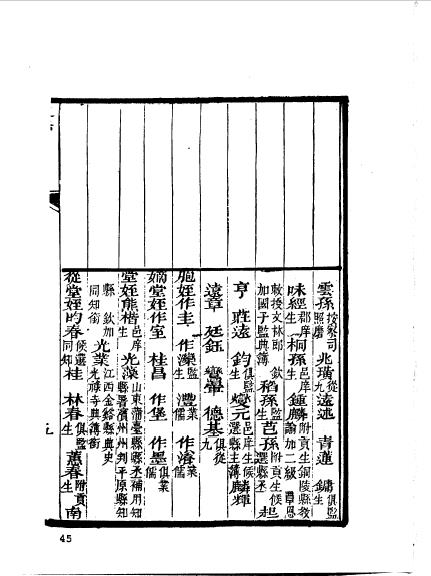 雲孫按察司照磨 兆璜從九 遠述 青蓮 鏞俱監生
味經郡庠生 桐孫邑庠生 鍾麟附貢生銅陵縣教諭加二級 覃恩
敕授文林郎 欽加國子監典簿 稻孫監生 芭孫附貢生候選縣丞 起
亨 遠 鈞俱監生 燮元邑庠生候選縣主簿 麟輝
遠章 廷鈺 鸞翬 德基俱從九
胞姪作圭 作濼監生 灃業儒 作濬業儒
嫡堂姪作室 桂昌 作堡 作墨俱業儒
堂姪熊楷邑庠生 光藻山東蒲臺縣縣丞補用知縣署濱州州判平原縣知
縣 欽加同知銜 光業江西金谿縣典史光祿寺典簿銜
從堂姪昀春候選同知 桂 林春俱監生 蕙春附貢生 南
五
45